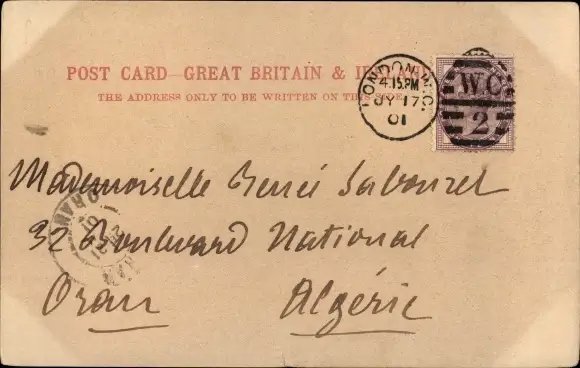 POST CARD—GREAT BRITAIN & IRELAND
THE ADDRESS ONLY TO BE WRITTEN ON THIS SIDE
LONDON.W.C.
4.15.PM
JY 17
01
W.C
2
Mademoiselle Renée
32 Boulevard National
Oran Algérie
ORAN